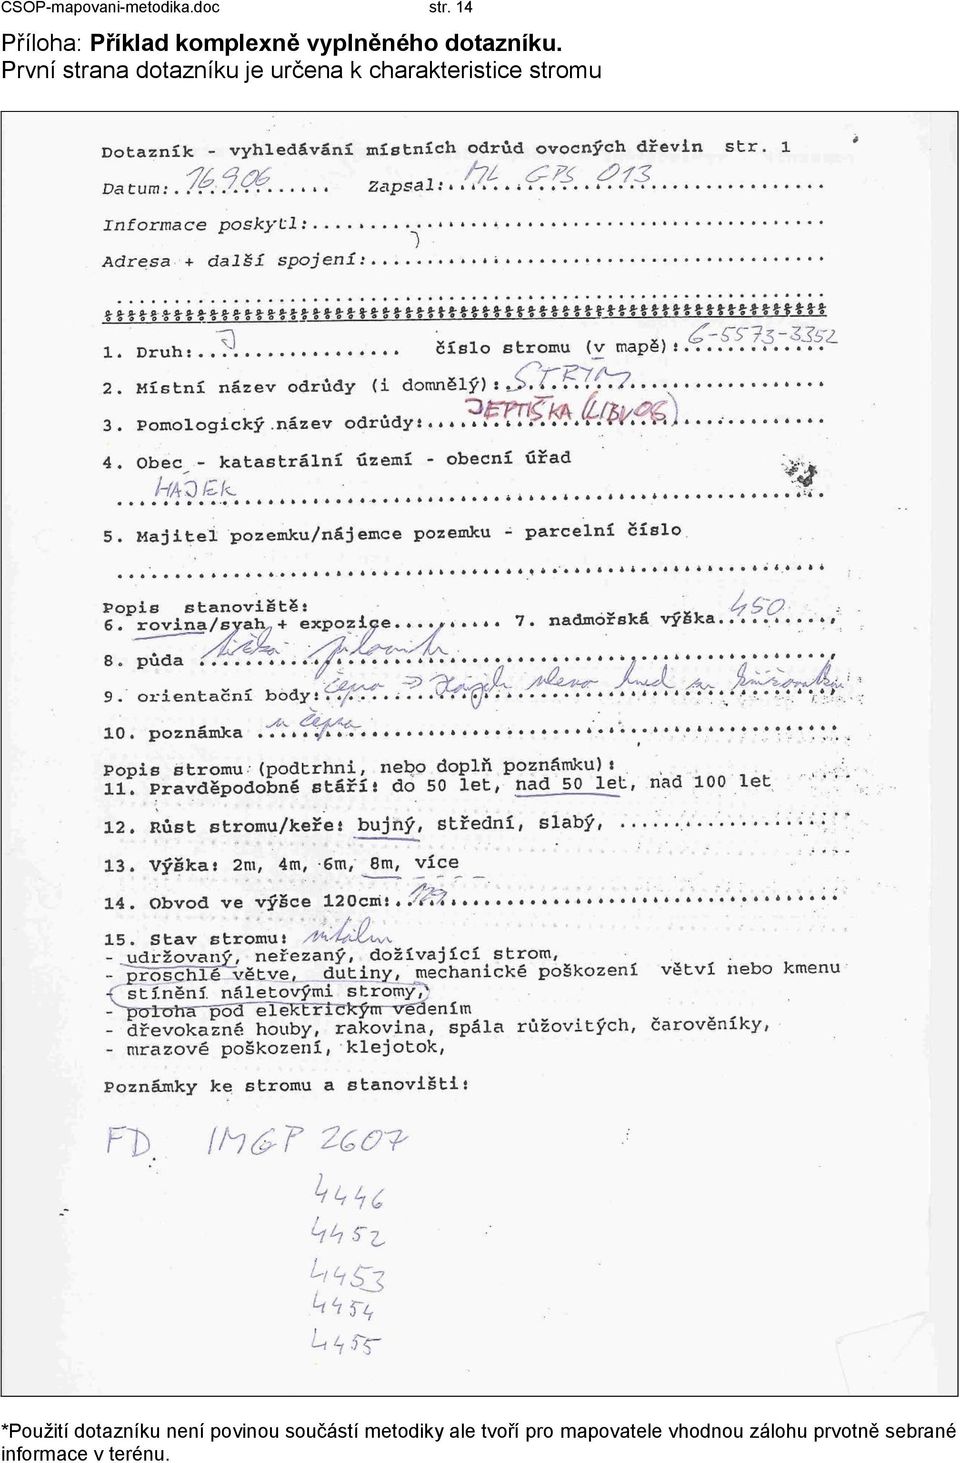 CSOP-mapovani-metodika.doc str. 14
Příloha: Příklad komplexně vyplněného dotazníku.
První strana dotazníku je určena k charakteristice stromu
Dotazník - vyhledávání místních odrůd ovocných dřevin str. 1
Datum: 16.9.06 Zapsal: ML GPS 013
Informace poskytl:
Adresa + další spojení:
1. Druh: J číslo stromu (v mapě): 6-5573-3352
2. Místní název odrůdy (i domnělý): STRÝM
3. Pomologický název odrůdy: JEPTIŠKA (LIBVOŠ)
4. Obec - katastrální území - obecní úřad
HÁJEK
5. Majitel pozemku/nájemce pozemku - parcelní číslo
Popis stanoviště:
6. rovina/svah + expozice 7. nadmořská výška 450
8. půda
9. orientační body: Hájek vlevo hned
10. poznámka
Popis stromu (podtrhni, nebo doplň poznámku):
11. Pravděpodobné stáří: do 50 let, nad 50 let, nad 100 let
12. Růst stromu/keře: bujný, střední, slabý,
13. Výška: 2m, 4m, 6m, 8m, více
14. Obvod ve výšce 120cm:
15. Stav stromu: vitální
- udržovaný, neřezaný, dožívající strom,
- proschlé větve, dutiny, mechanické poškození větví nebo kmenu
- stínění náletovými stromy,
- poloha pod elektrickým vedením
- dřevokazné houby, rakovina, spála růžovitých, čarověníky,
- mrazové poškození, klejotok,
Poznámky ke stromu a stanovišti:
FD. IMGP 2607
4446
4452
4453
4454
4455
*Použití dotazníku není povinou součástí metodiky ale tvoří pro mapovatele vhodnou zálohu prvotně sebrané
informace v terénu.